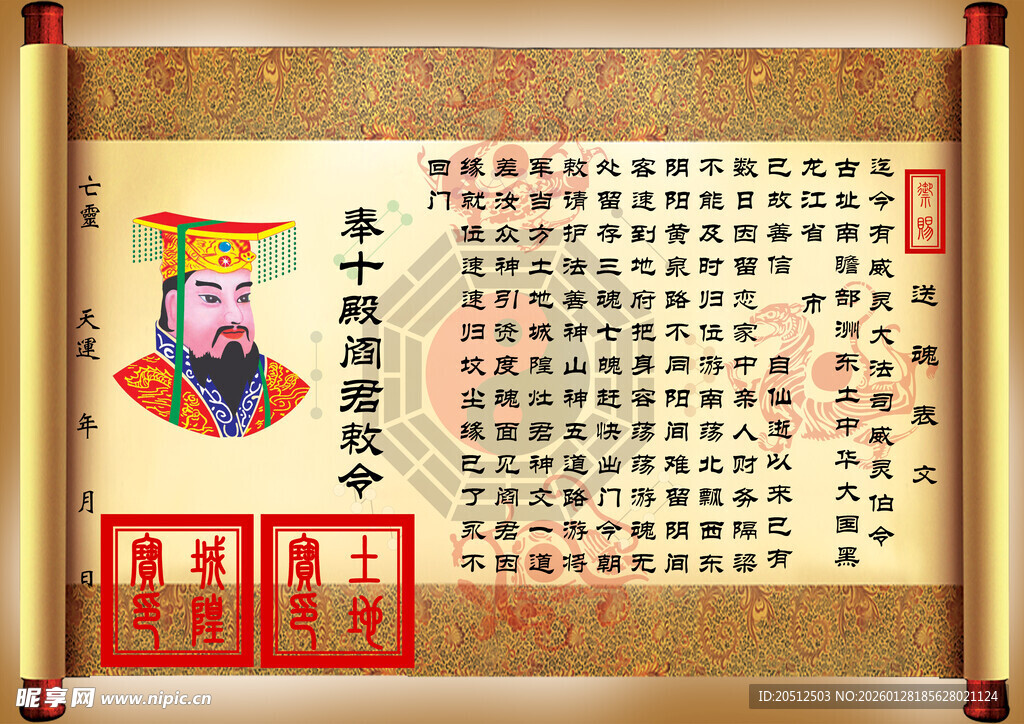 御赐
送魂表文
迄今有威灵大法司威灵伯令
古址南瞻部洲东土中华大国黑
龙江省 市
已故善信 自仙逝以来已有
数日因留恋家中亲人财务隔梁
不能及时归位游南荡北飘西东
阴阳黄泉路不同阳间难留阴间
客速到地府把身容荡荡游魂无
处留存三魂七魄赶快出门今朝
敕请护法善神山神五道路游将
军当方土地城隍灶君神文一道
差汝众神引资度魂面见阎君因
缘就位速速归坟尘缘已了永不
回门
奉十殿阎君敕令
亡靈 天運 年 月 日
土地寶印
城隍寶印
昵享网 www.nipic.cn
ID:20512503 NO:20260128185628021124